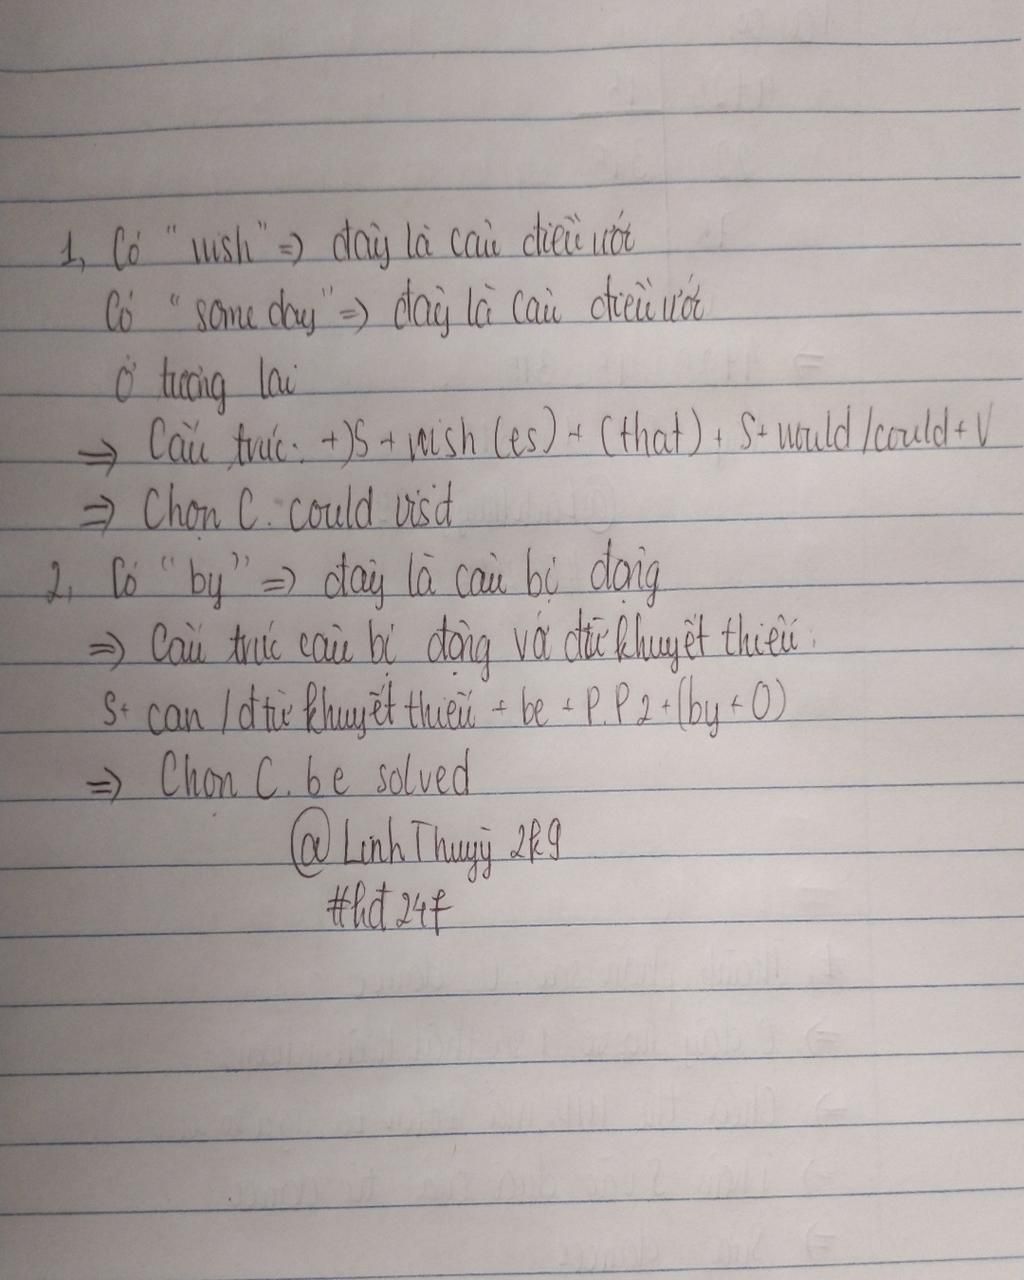 1, Có "wish" => đây là câu điều ước
Có "some day" => đây là câu điều ước
ở tương lai
=> Cấu trúc: +)S + wish (es) + (that) + S+ would /could + V
=> Chọn C. could visit
2, Có "by" => đây là câu bị động
=> Cấu trúc câu bị động và đtừ khuyết thiếu:
S+ can / đtừ khuyết thiếu + be + P.P2 +(by + O)
=> Chọn C. be solved
@ Linh Thuỳy 2k9
#hđ 247